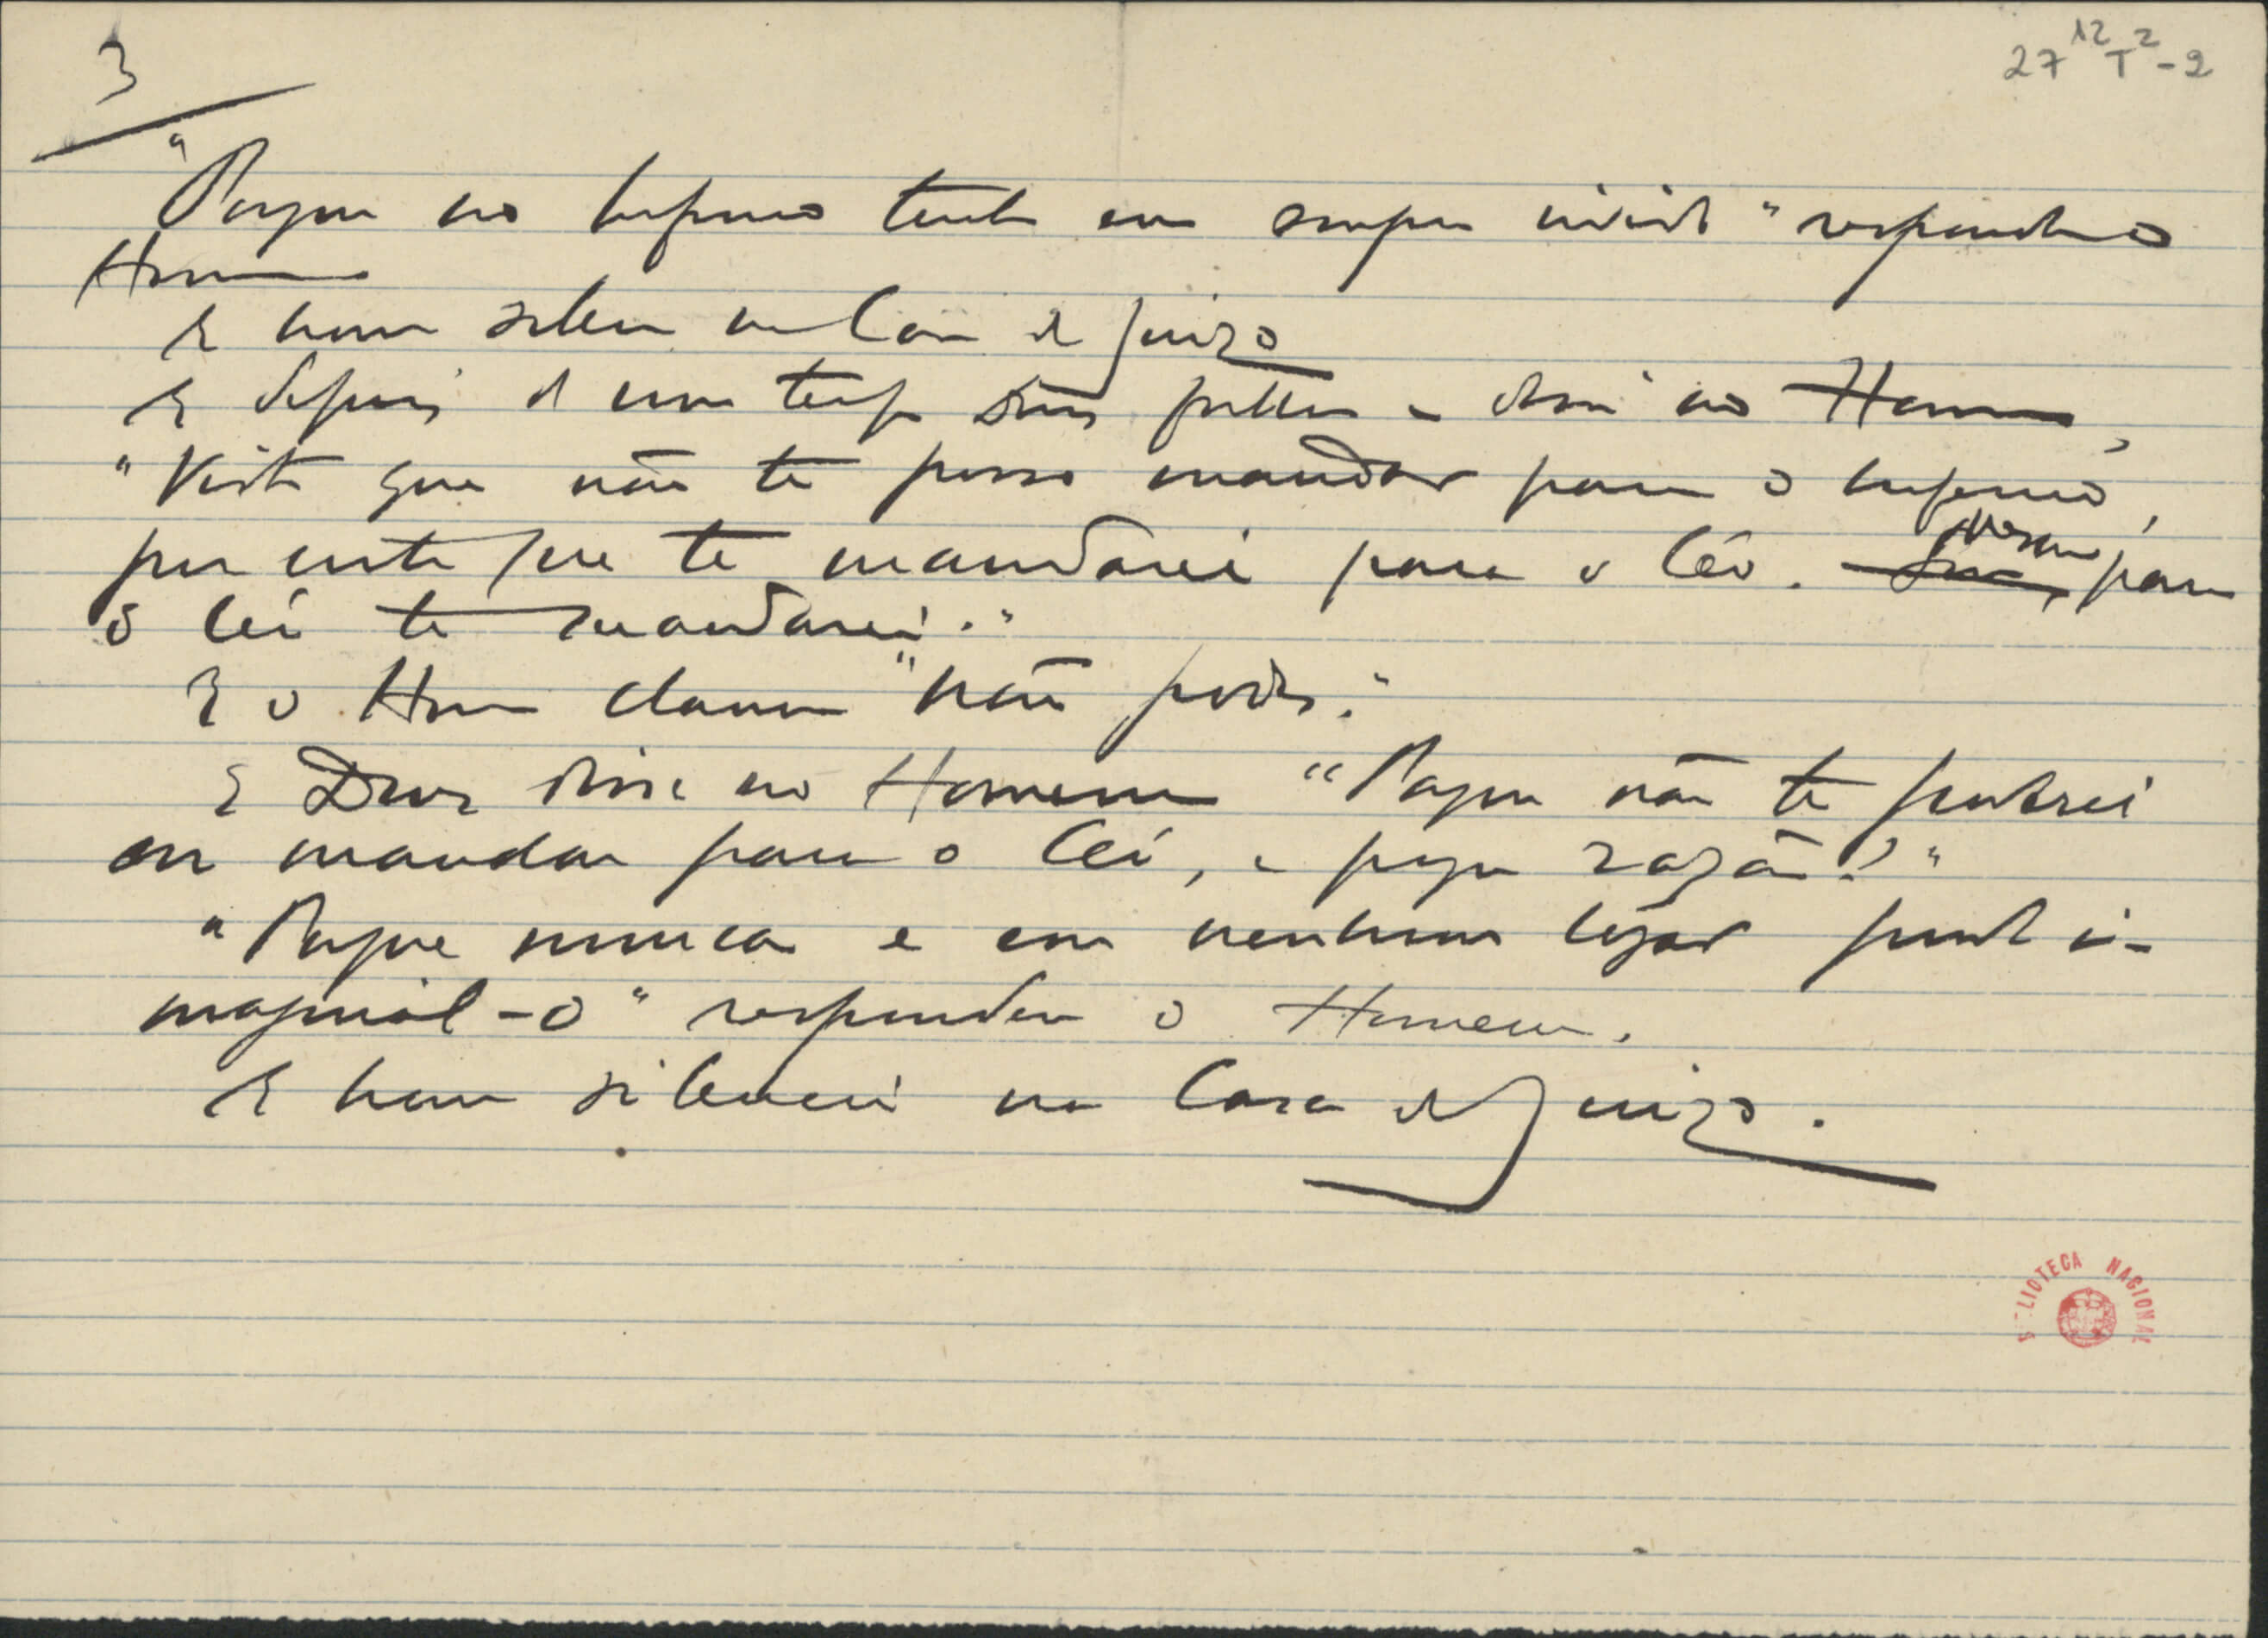 3
27 12 T 2 - 2
"Porque no Inferno tenho eu sempre vivido" respondeu o
Homem
E houve silencio na Casa de Juizo
E depois de um tempo Deus fallou e disse ao Homem,
"Visto que não te posso mandar para o Inferno,
por certo que te mandarei para o Céo. para
o Céo te mandarei."
E o Homem clamou "Não podes."
E Deus disse ao Homem "Porque não te poderei
eu mandar para o Céo, e porque razão?"
"Porque nunca e em nenhum logar pude i-
maginal-o" respondeu o Homem.
E houve silencio na Casa de Juizo.
BIBLIOTECA NACIONAL